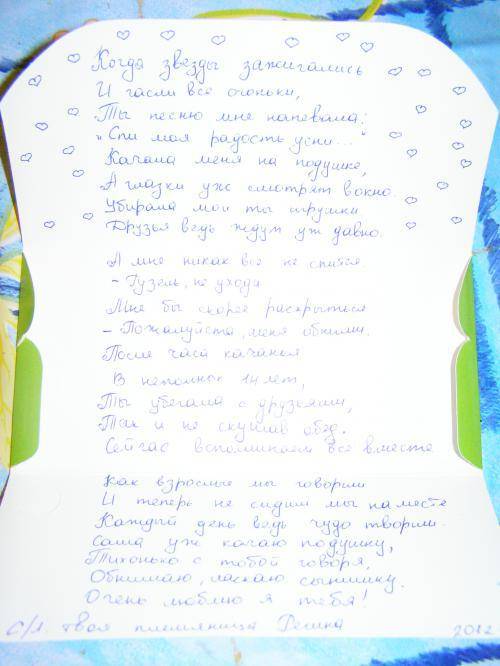 Когда звезды зажигались
И гасли все огоньки,
Ты песню мне напевала:
"Спи моя радость усни..."
Качала меня на подушке,
А глазки уж смотрят в окно.
Убирала мои ты игрушки
Друзья ведь ждут уж давно.
А мне никак все не спится
- Гузель, не уходи
Мне бы скорее раскрыться
- Пожалуйста, меня обними.
После часа качанья
В неполных 14 лет,
Ты убегала с друзьями,
Так и не скушав обед.
Сейчас вспоминаем все вместе
Как взрослые мы говорим
И теперь не сидим мы на месте
Каждый день ведь чудо творим.
Сама уж качаю подушку,
Тихонько с тобой говоря,
Обнимаю, ласкаю сынишку.
Очень люблю я тебя!
С/л. твоя племянница 2012